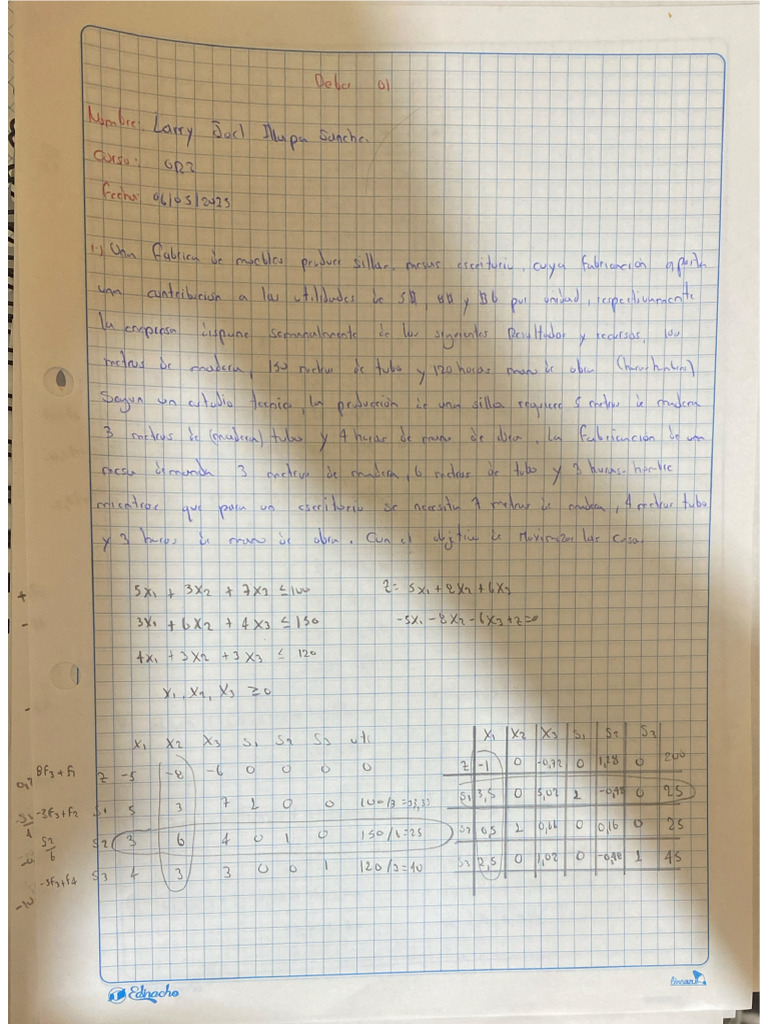 Deber 01
Nombre: Larry Joel Illapa Sanche
Curso: OR2
Fecha: 06/05/2025
1.) Una Fabrica de muebles produce sillas, mesas escritorio, cuya fabricación aporta
una contribución a las utilidades de 5$, 8$ y $6 por unidad, respectivamente
la empresa dispone semanalmente de los siguientes Resultados y recursos, 100
metros de madera, 150 metros de tubo y 120 horas mano de obra (horas hombre)
Segun un estudio tecnico, la producción de una silla requiere 5 metros de madera
3 metros de (madera) tubo y 4 horas de mano de obra. La Fabricación de un
mesa demanda 3 metros de madera, 6 metros de tubo y 3 horas-hombre
mientras que para un escritorio se necesita 7 metros de madera, 4 metros tubo
y 3 horas de mano de obra. Con el objetivo de Maximizar las
5X1 + 3X2 + 7X2 ≤ 100 Z = 5X1 + 8X2 + 6X3
3X1 + 6X2 + 4X3 ≤ 150 -5X1 - 8X2 - 6X3 + Z = 0
4X1 + 3X2 + 3X3 ≤ 120
X1, X2, X3 ≥ 0
X1 X2 X3 S1 S2 S3
8f3 + f1 Z -5 -8 -6 0 0 0 0
-3f3 + f2 S1 5 3 7 1 0 0 100/3 = 33,33
S2/6 S2 3 6 4 0 1 0 150/6 = 25
-3f3 + f4 S3 4 3 3 0 0 1 120/3 = 40
X1 X2 X3 S1 S2 S3
Z -1 0 -0,72 0 1,28 0 200
S1 3,5 0 5,02 1 -0,48 0 25
S2 0,5 1 0,66 0 0,16 0 25
S3 2,5 0 1,02 0 -0,48 1 45
Edinacho